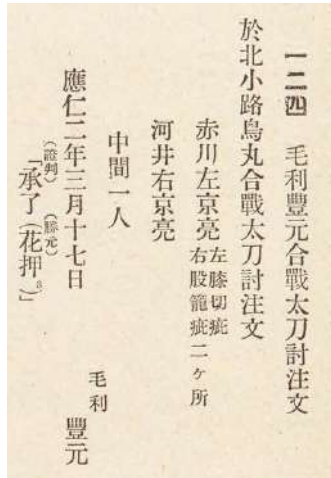 一二四 毛利豐元合戰太刀討注文
於北小路烏丸合戰太刀討注文
赤川左京亮 左膝切疵
右股籠疵二ヶ所
河井右京亮
中間一人
應仁二年三月十七日
毛利 豐元
(證判) (勝元)
「承了(花押)」